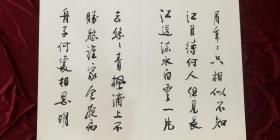 月年々只相似不知
江月待何人但見長
江送流水白雲一片
去悠々青楓浦上不
勝愁誰家今夜扁
舟子何處相思明